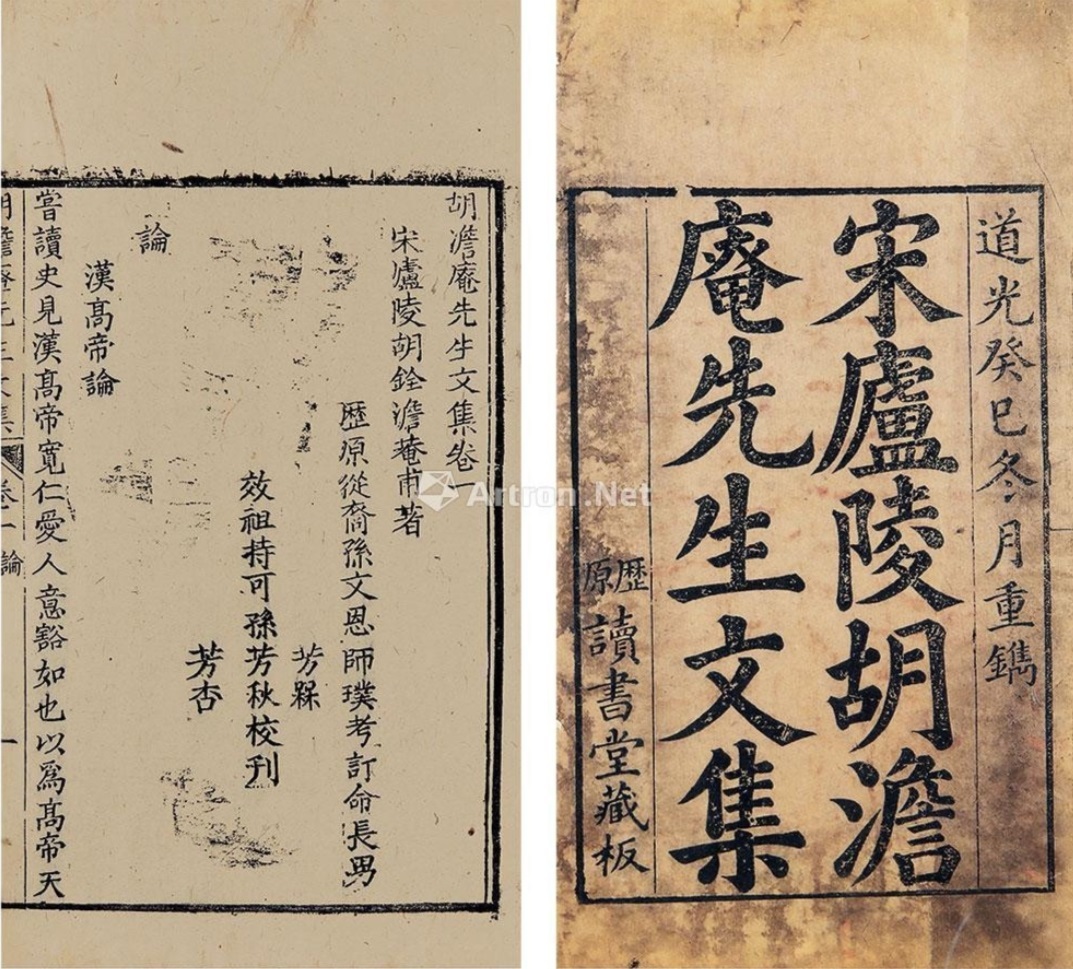 道光癸巳冬月重鐫
宋廬陵胡澹
庵先生文集
歷原讀書堂藏板
胡澹庵先生文集卷一
宋廬陵胡銓澹菴甫著
歷原從裔孫文恩師璞考訂命長男
芳槑
效祖持可孫芳秋校刊
芳杏
論
漢髙帝論
嘗讀史見漢髙帝寬仁愛人意豁如也以爲髙帝天
胡澹庵先生文集 卷一 論 一
Artron.Net